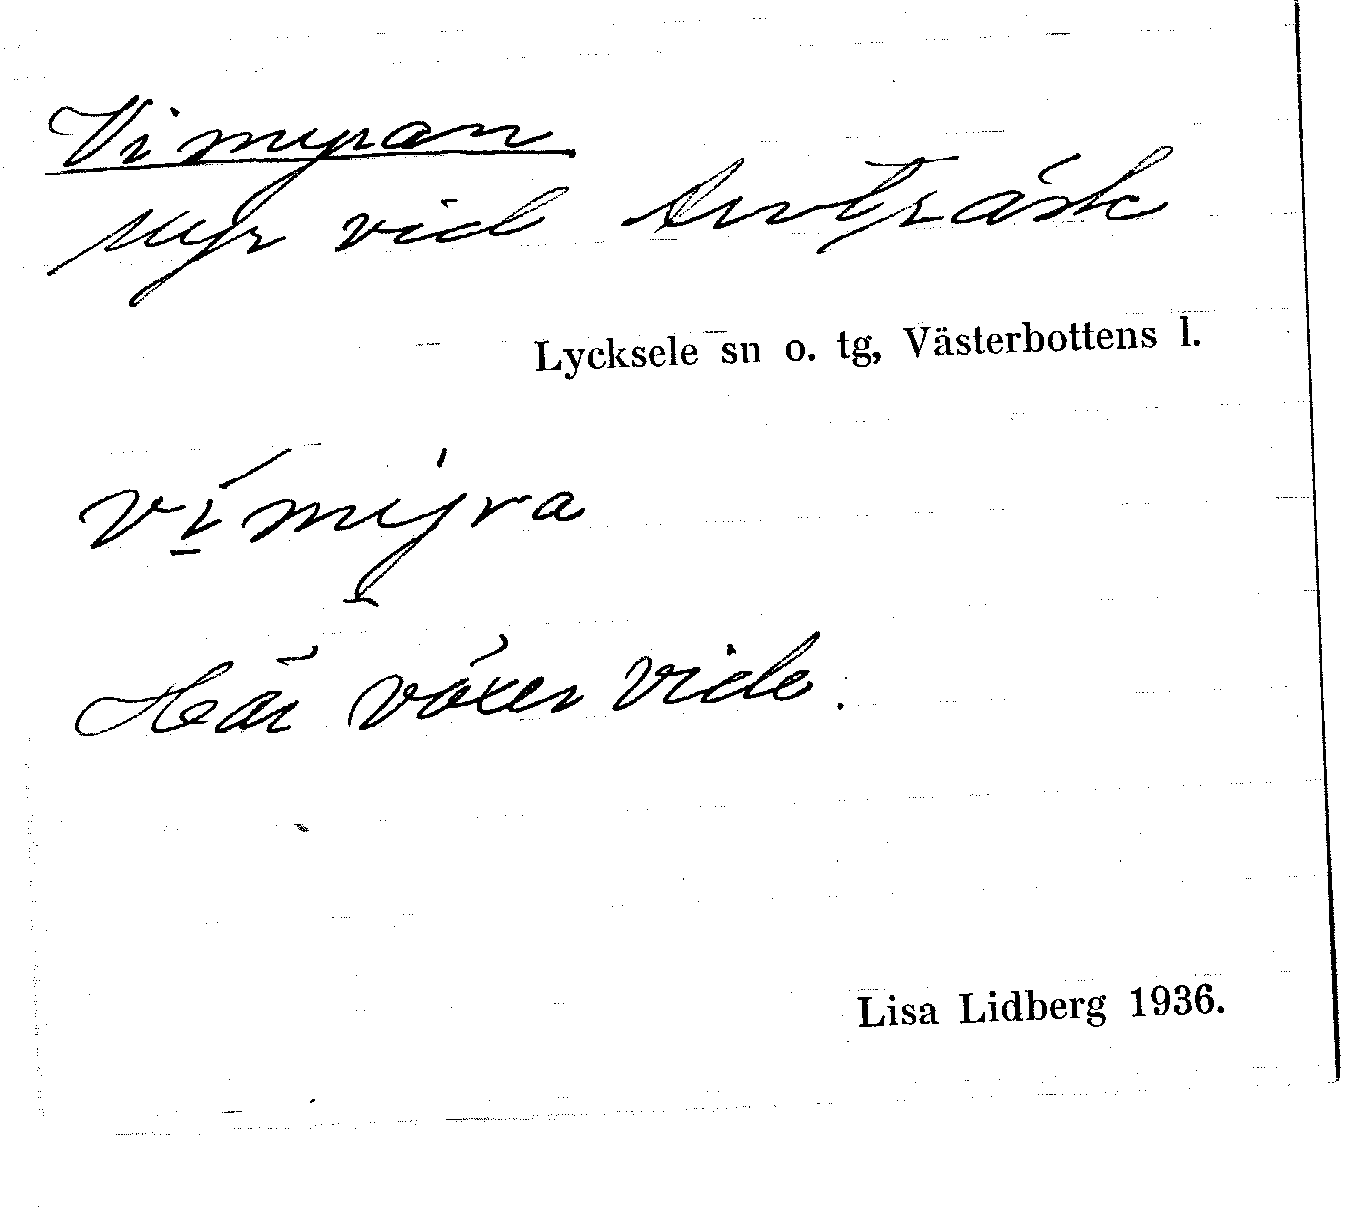 Vimyran
Myr vid Arvträsk
Lycksele sn o. tg, Västerbottens l.
vímy̍ra
Här växer vide.
Lisa Lidberg 1936.